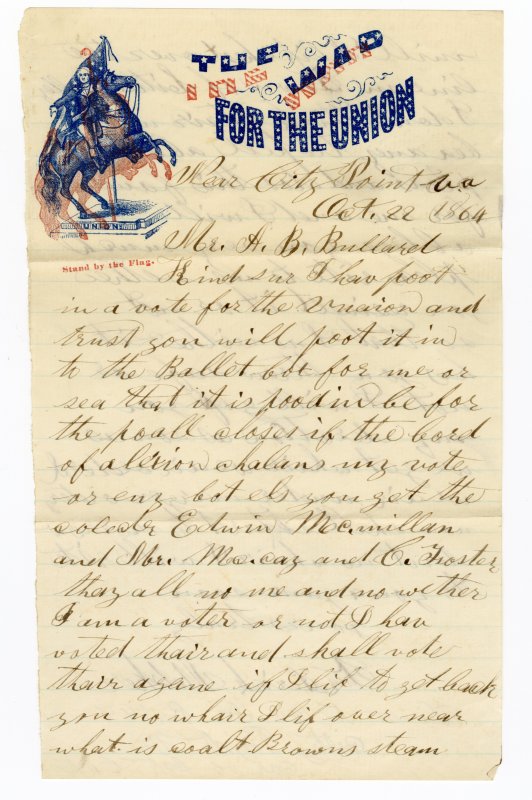 THE WAR
FOR THE UNION
UNION
Stand by the Flag.
Near City Point va
Oct. 22 1864
Mr. A. B. Bullard
Kind sur I hav poot
in a vote for the Unaion and
trust you will poot it in
to the Ballet bot for me or
sea that it is poodin be for
the poall closes if the bord
of alixion chalans my vote
or eny bot els you get the
Edwin Mc.millan
and Mr. Mc.cay and C. Froster
thay all no me and no wether
I am a voter or not I hav
voted thair and shall vote
thair agane if I lif to get back
you no whair I lif over near
what is coalt Browns steam